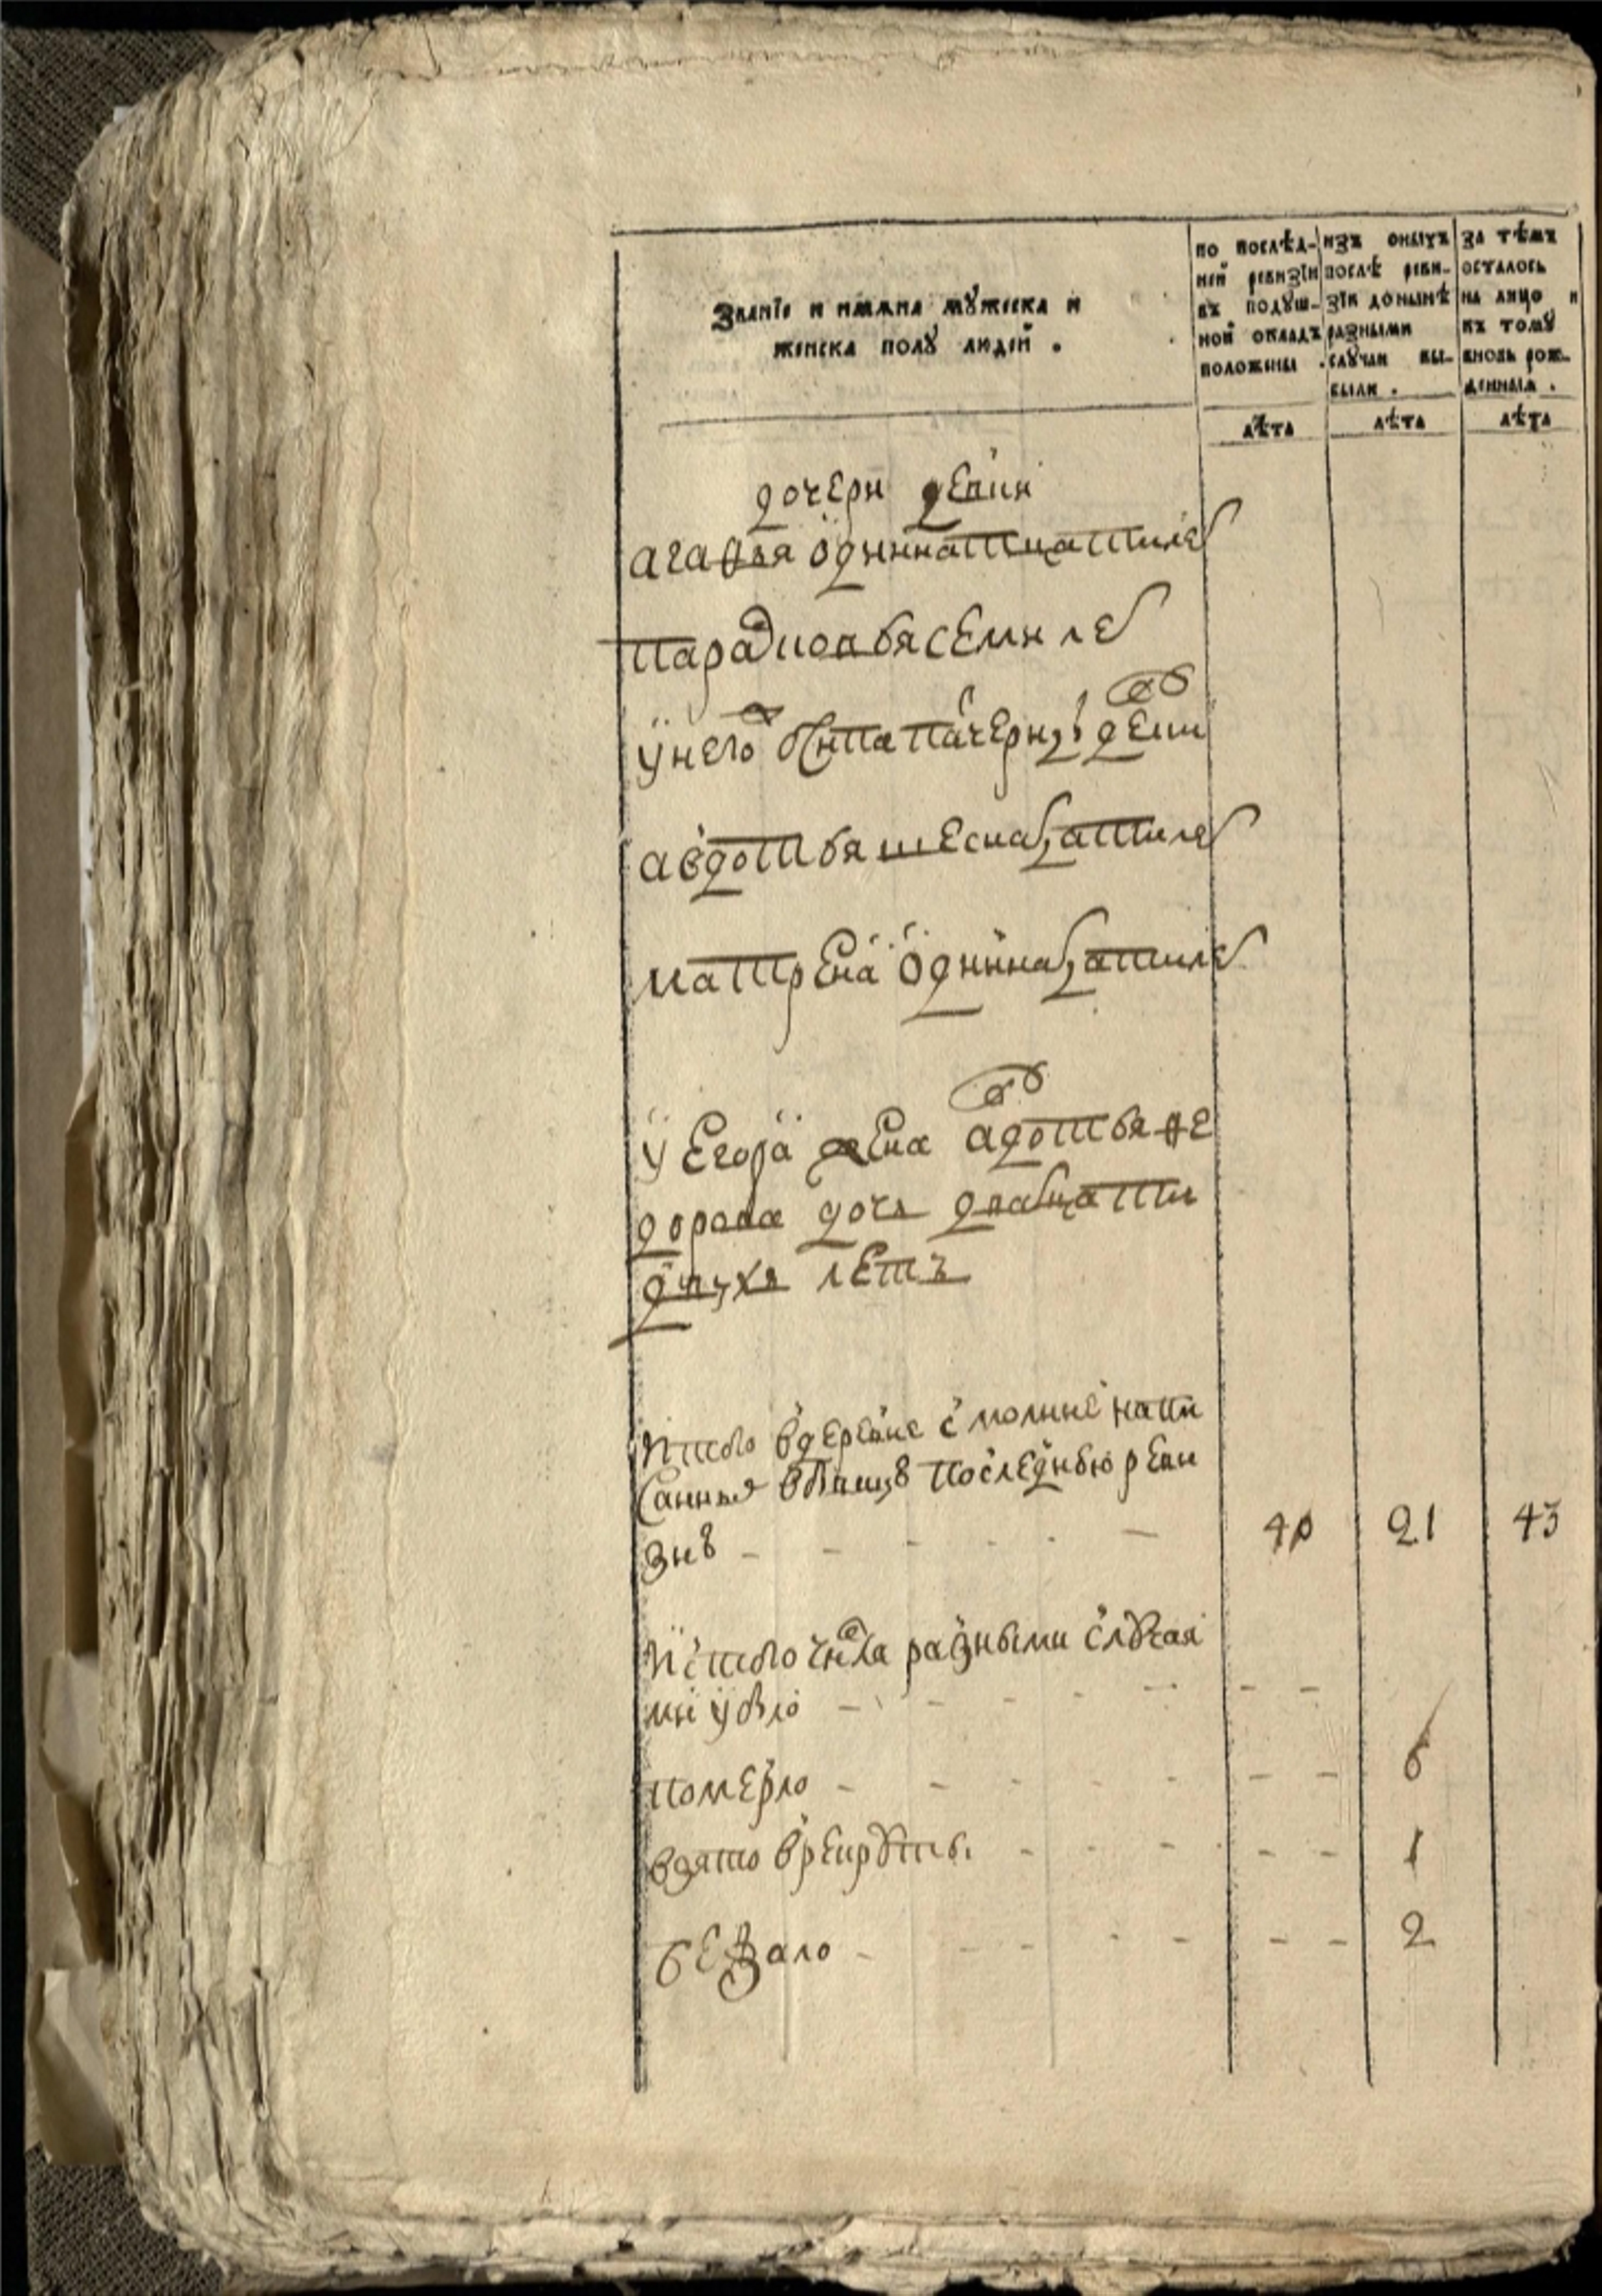 Званїе и имѧна мꙋжеска и
женска полꙋ людей .
по послѣд-
ней ревизїи
въ подꙋш-
ной окладъ
положены .
изъ оныхъ
послѣ реви-
зїи донынѣ
разными
слꙋчаи вы-
были .
за тѣмъ
осталось
на лицо и
къ томꙋ
вновь рож-
денныѧ .
лѣта
лѣта
лѣта
дочери девки
агафья одиннатцатиле
парасковья семи ле
у него
падчериць девки
авдотья шеснатцатиле
матрена одиннатцатиле
у егора жена авдотья фе
дорова дочь дватцати
двухъ летъ
итого вдеревне
напи
санныя
последнью реви
зию - - - - - -
40 21 43
ис того числа разными случая
ми убло - - - - - - -
померло - - - - - - - 6
взято врекруты - - - - - 1
бежало - - - - - - - 2